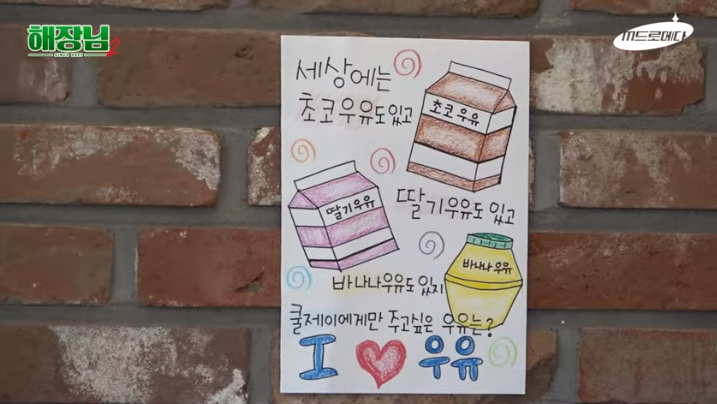 해장님2
SINCE 2021
M드로메다
세상에는
초코우유도 있고
초코우유
딸기우유
딸기우유도 있고
바나나우유
바나나우유도 있지
쿨제이에게만 주고싶은 우유는?
I ♥ 우유